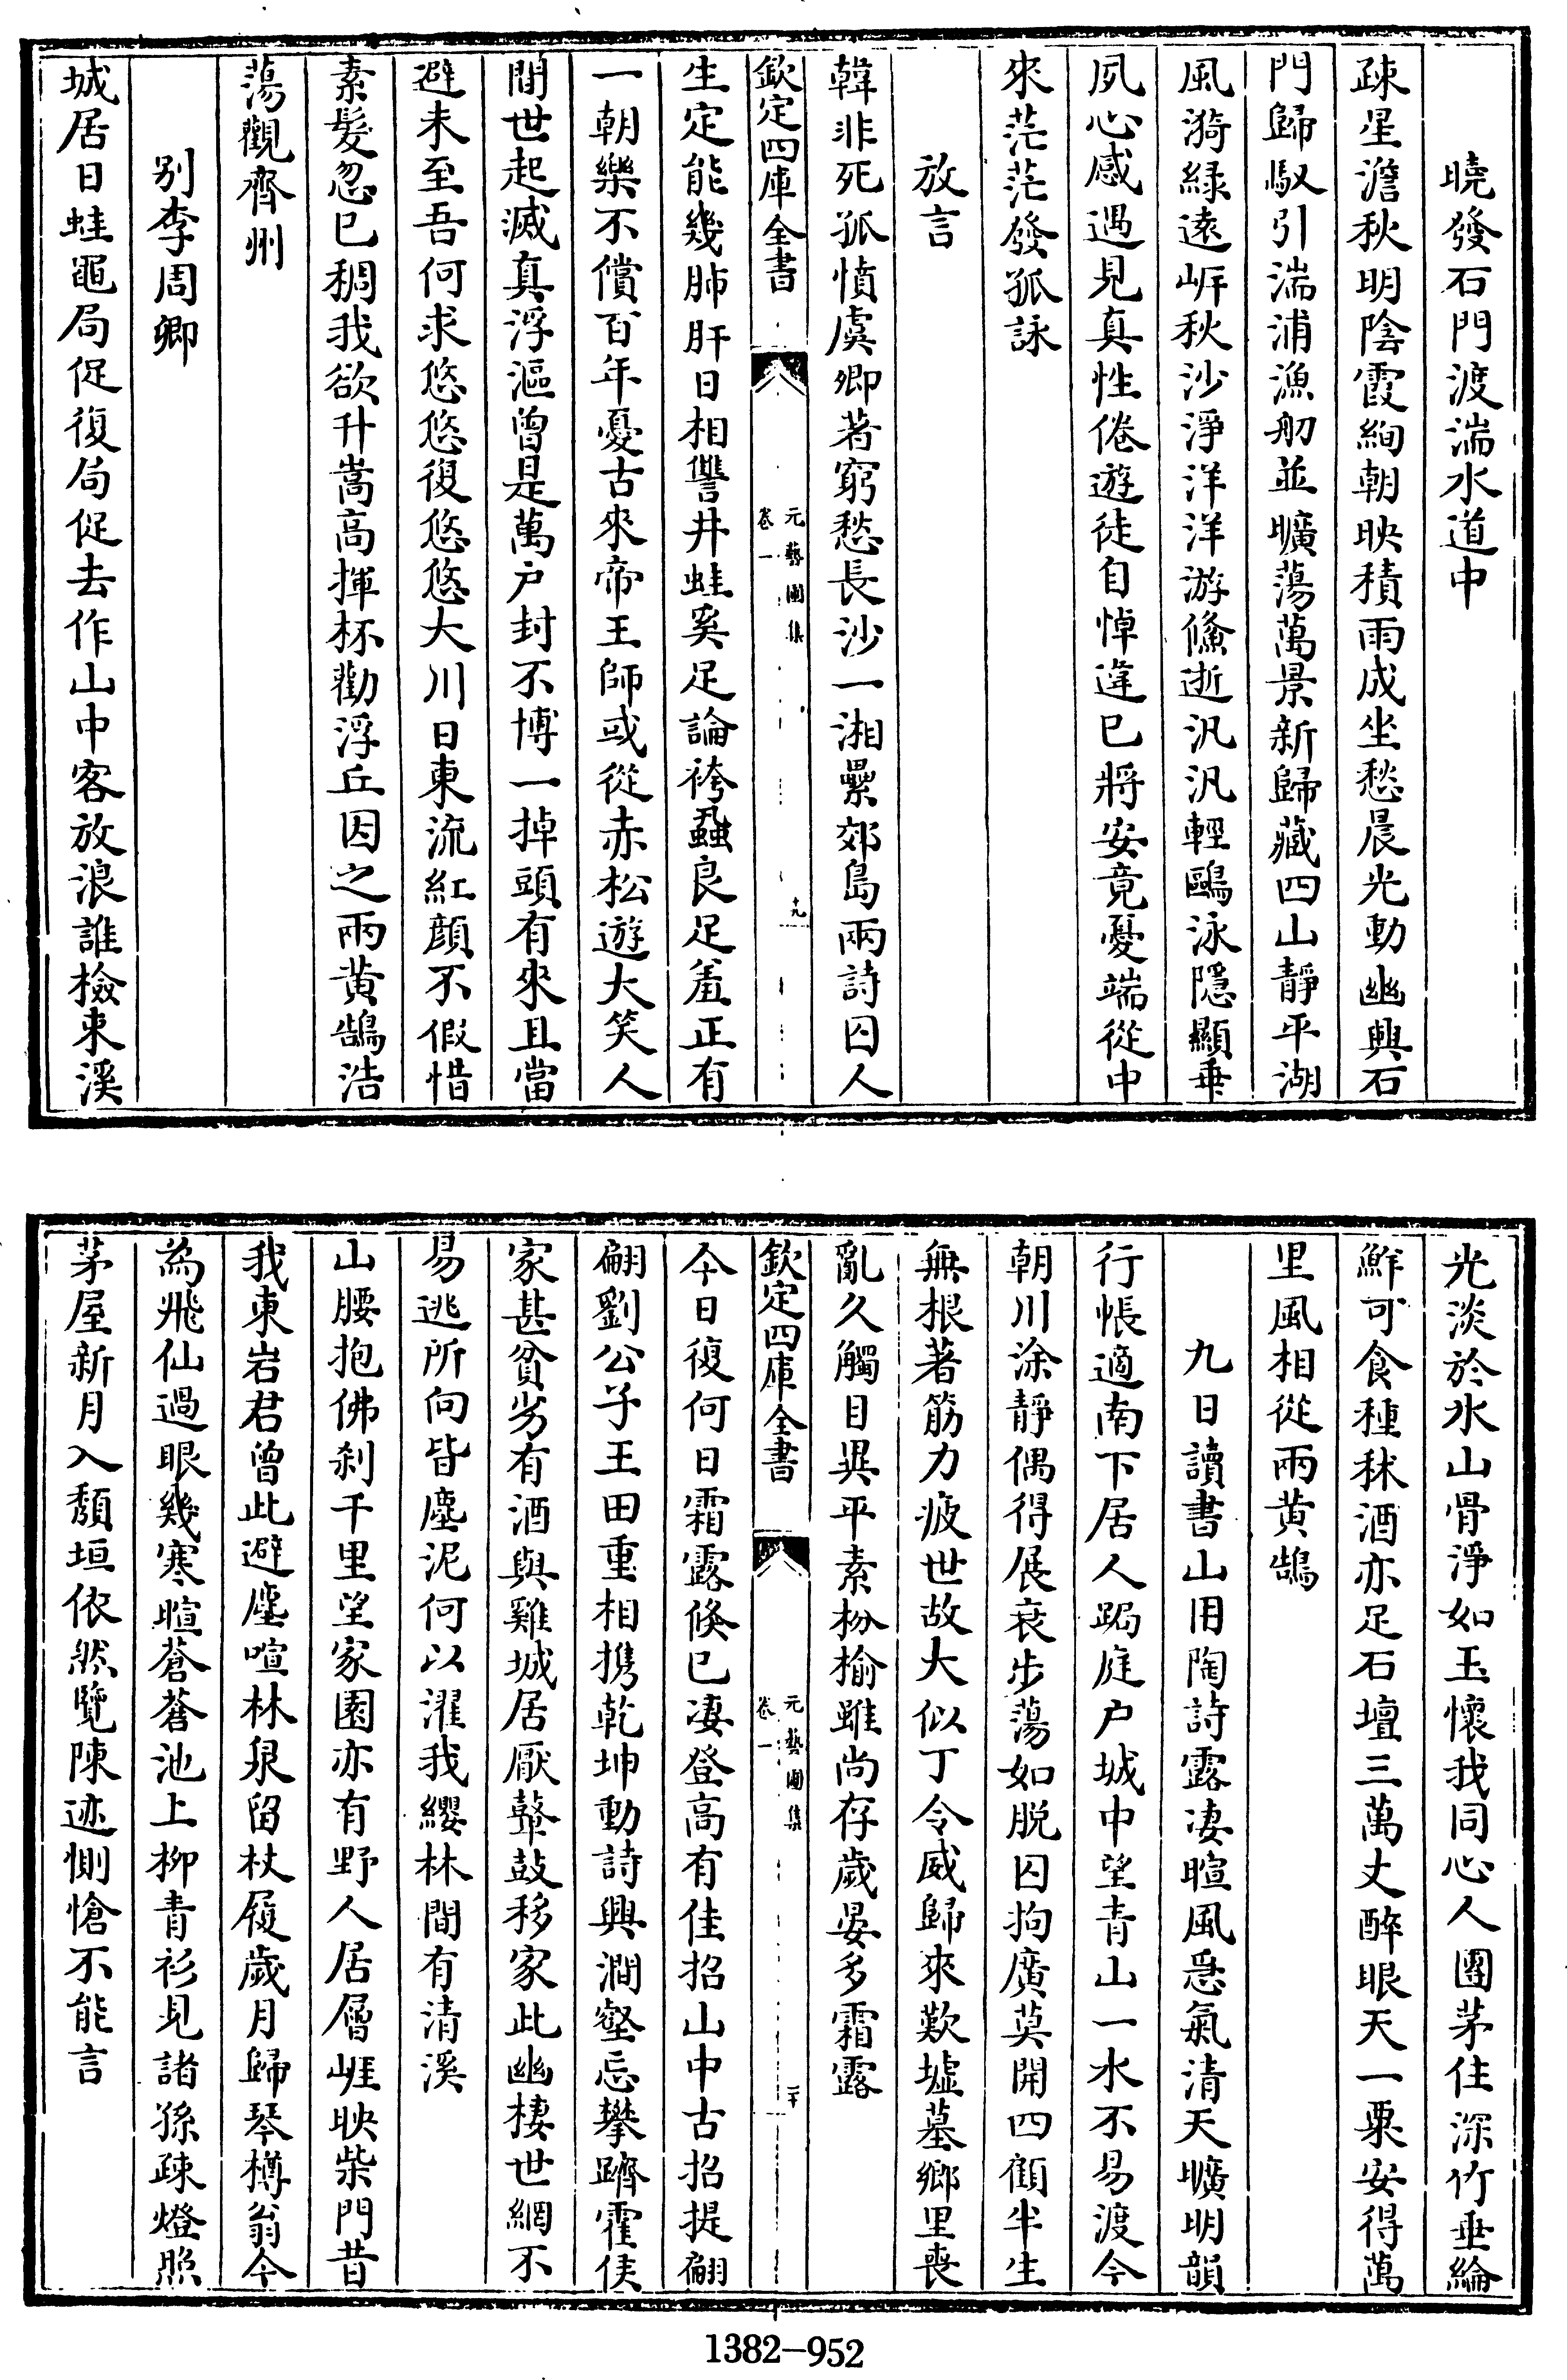 曉發石門渡湍水道中
疎星澹秋明陰霞絢朝映積雨成坐愁晨光動幽興石
門歸馭引湍浦漁舠並曠蕩萬景新歸藏四山靜平湖
風漪緑遠岸秋沙淨洋洋游鯈逝汎汎輕鷗泳隠顯垂
夙心感遇見真性倦遊徒自悼違已將安竟憂端從中
來茫茫發孤詠
放言
韓非死孤憤虞卿著窮愁長沙一湘纍郊島兩詩囚人
欽定四庫全書
元藝圃集
卷一
十九
生定能幾肺肝日相讐井蛙奚足論袴蝨良足羞正有
一朝樂不償百年憂古來帝王師或從赤松遊大笑人
間世起滅真浮漚曾是萬户封不博一掉頭有來且當
避未至吾何求悠悠復悠悠大川日東流紅顔不假惜
素髮忽已稠我欲升嵩高揮杯勸浮丘因之兩黄鵠浩
蕩觀齊州
别李周卿
城居日蛙黽局促復局促去作山中客放浪誰檢束溪
光淡於氷山骨淨如玉懷我同心人團茅住深竹垂綸
鮮可食種秫酒亦足石壇三萬丈醉眼天一粟安得萬
里風相從兩黄鵠
九日讀書山用陶詩露凄暄風息氣清天曠明韻
行帳適南下居人跼庭户城中望青山一水不易渡今
朝川涂靜偶得展衰步蕩如脱囚拘廣莫開四顧半生
無根著筋力疲世故大似丁令威歸來歎墟墓鄉里喪
亂久觸目異平素枌榆雖尚存歲晏多霜露
欽定四庫全書
元藝圃集
卷一
二十
今日復何日霜露倐已凄登高有佳招山中古招提翩
翩劉公子王田重相携乾坤動詩興澗壑忘攀躋霍侯
家甚貧劣有酒與雞城居厭鼙鼓移家此幽棲世網不
易逃所向皆塵泥何以濯我纓林間有清溪
山腰抱佛刹千里望家園亦有野人居層崖映柴門昔
我東岩君曾此避塵喧林泉留杖屨歲月歸琴樽翁今
為飛仙過眼幾寒暄蒼蒼池上柳青衫見諸孫疎燈照
茅屋新月入頽垣依然覽陳迹惻愴不能言
1382-952